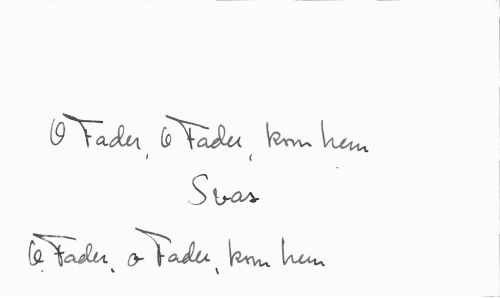 O Fader, O Fader, kom hem
Svas
O Fader, o Fader, kom hem